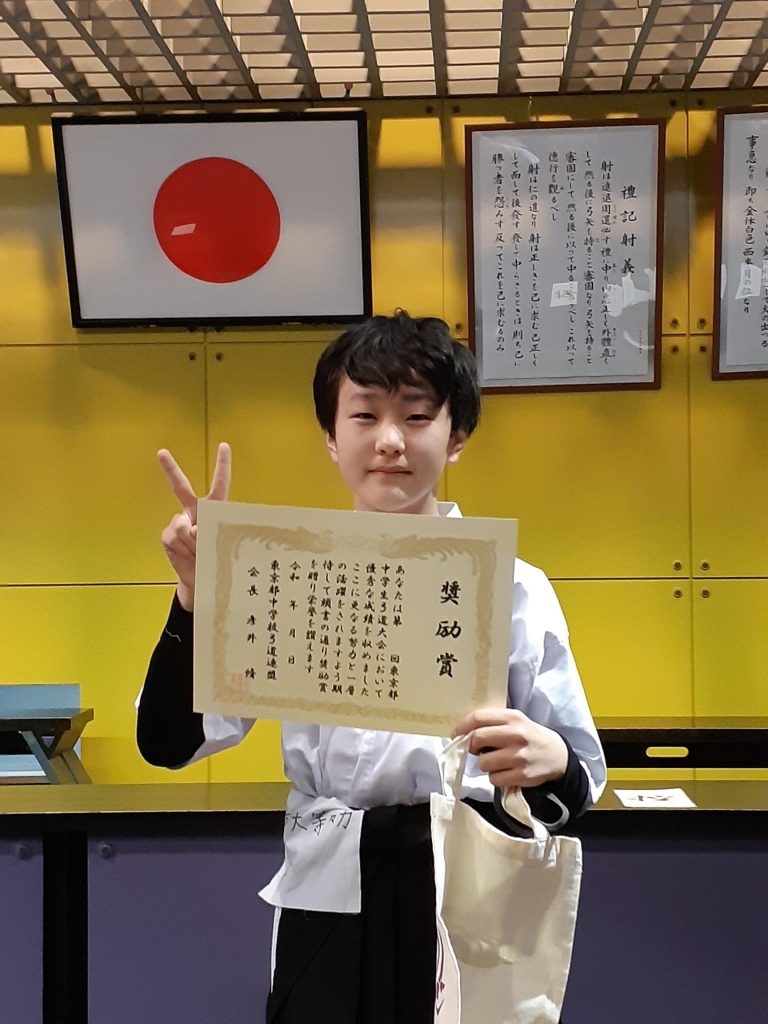 禮記射義
射は進退周還必ず禮に中り内正しく外體直く
して、然る後に弓矢を持ること審固なり弓矢を持ること
審固にして、然る後に以って中るべし これ以って
徳行を觀るべし
射は仁の道なり 射は正しきを己に求む 己正しく
して而して後發す 發して中らざるときは則ち己に
勝つ者を怨みず 反ってこれを己に求むるのみ
事急なり 即ち金体白色 西月の位なり
奨励賞
あなたは第 回東京都
中学生弓道大会において
優秀な成績を収めました
ここに更なる努力と一層
の活躍をされますよう期
待して頭書の通り奨励賞
を贈り栄誉を讃えます
令和 年 月 日
東京都中学校弓道連盟
会長 彦井 脩
大等々力